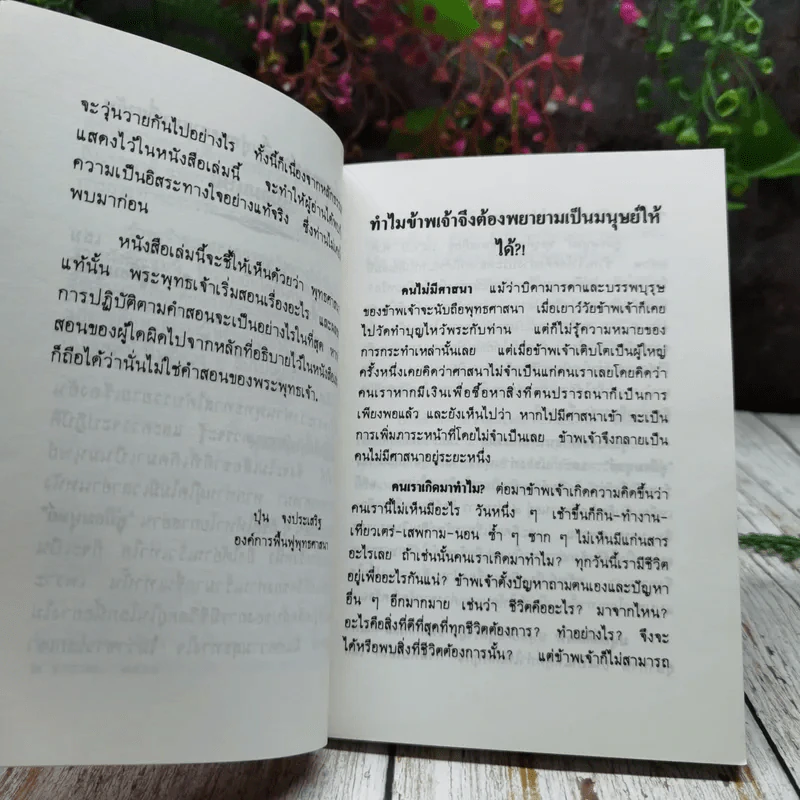 จะวุ่นวายกันไปอย่างไร ทั้งนี้ก็เนื่องจากหลัก
แสดงไว้ในหนังสือเล่มนี้ จะทำให้ผู้อ่านได้
ความเป็นอิสระทางใจอย่างแท้จริง ซึ่งท่านไม่
พบมาก่อน
หนังสือเล่มนี้จะชี้ให้เห็นด้วยว่า พุทธศาสนา
แท้นั้น พระพุทธเจ้าเริ่มสอนเรื่องอะไร และ
การปฏิบัติตามคำสอนจะเป็นอย่างไรในที่สุด
สอนของผู้ใดผิดไปจากหลักที่อธิบายไว้ในหนังสือ
ก็ถือได้ว่านั่นไม่ใช่คำสอนของพระพุทธเจ้า.
ปุ่น จงประเสริฐ
องค์การฟื้นฟูพุทธศาสนา
ทำไมข้าพเจ้าจึงต้องพยายามเป็นมนุษย์ให้
ได้?!
คนไม่มีศาสนา แม้ว่าบิดามารดาและบรรพบุรุษ
ของข้าพเจ้าจะนับถือพุทธศาสนา เมื่อเยาว์วัยข้าพเจ้าก็เคย
ไปวัดทำบุญไหว้พระกับท่าน แต่ก็ไม่รู้ความหมายของ
การกระทำเหล่านั้นเลย แต่เมื่อข้าพเจ้าเติบโตเป็นผู้ใหญ่
ครั้งหนึ่งเคยคิดว่าศาสนาไม่จำเป็นแก่คนเราเลยโดยคิดว่า
คนเราหากมีเงินเพื่อซื้อหาสิ่งที่ตนปรารถนาก็เป็นการ
เพียงพอแล้ว และยังเห็นไปว่า หากไปมีศาสนาเข้า จะเป็น
การเพิ่มภาระหน้าที่โดยไม่จำเป็นเลย ข้าพเจ้าจึงกลายเป็น
คนไม่มีศาสนาอยู่ระยะหนึ่ง
คนเราเกิดมาทำไม? ต่อมาข้าพเจ้าเกิดความคิดขึ้นว่า
คนเรานี้ไม่เห็นมีอะไร วันหนึ่ง ๆ เช้าขึ้นก็กิน-ทำงาน-
เที่ยวเตร่-เสพกาม-นอน ซ้ำ ๆ ซาก ๆ ไม่เห็นมีแก่นสาร
อะไรเลย ถ้าเช่นนั้นคนเราเกิดมาทำไม? ทุกวันนี้เรามีชีวิต
อยู่เพื่ออะไรกันแน่? ข้าพเจ้าตั้งปัญหาถามตนเองและปัญหา
อื่น ๆ อีกมากมาย เช่นว่า ชีวิตคืออะไร? มาจากไหน?
อะไรคือสิ่งที่ดีที่สุดที่ทุกชีวิตต้องการ? ทำอย่างไร? จึงจะ
ได้หรือพบสิ่งที่ชีวิตต้องการนั้น? แต่ข้าพเจ้าก็ไม่สามารถ